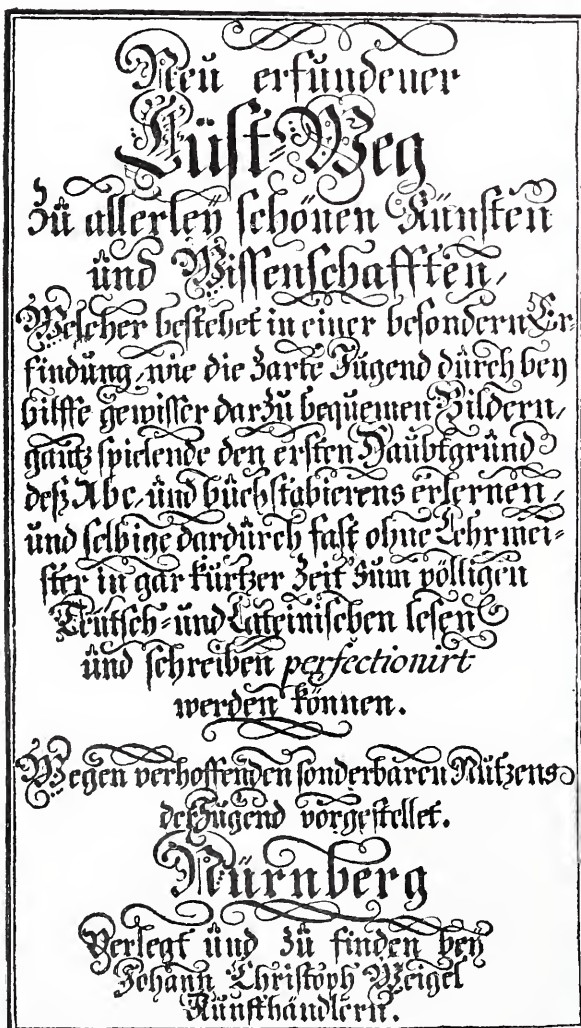 Neu erfundener
Lust-Weg
Zu allerley schönen Künsten
und Wissenschafften,
Welcher bestehet in einer besondern Er-
findung, wie die zarte Jugend durch bey
hilffe gewisser darzu bequemen Bildern,
gantz spielende den ersten Haubtgrund
deß Abc, und buchstabierens erlernen,
und selbige dardurch fast ohne Lehrmei-
ster in gar kurtzer Zeit zum völligen
Teutsch- und Lateinischen lesen
und schreiben perfectionirt
werden können.
Wegen verhoffenden sonderbaren Nutzens
der Jugend vorgestellet.
Nürnberg
Verlegt und zu finden bey
Johann Christoph Weigel
Kunsthändlern.